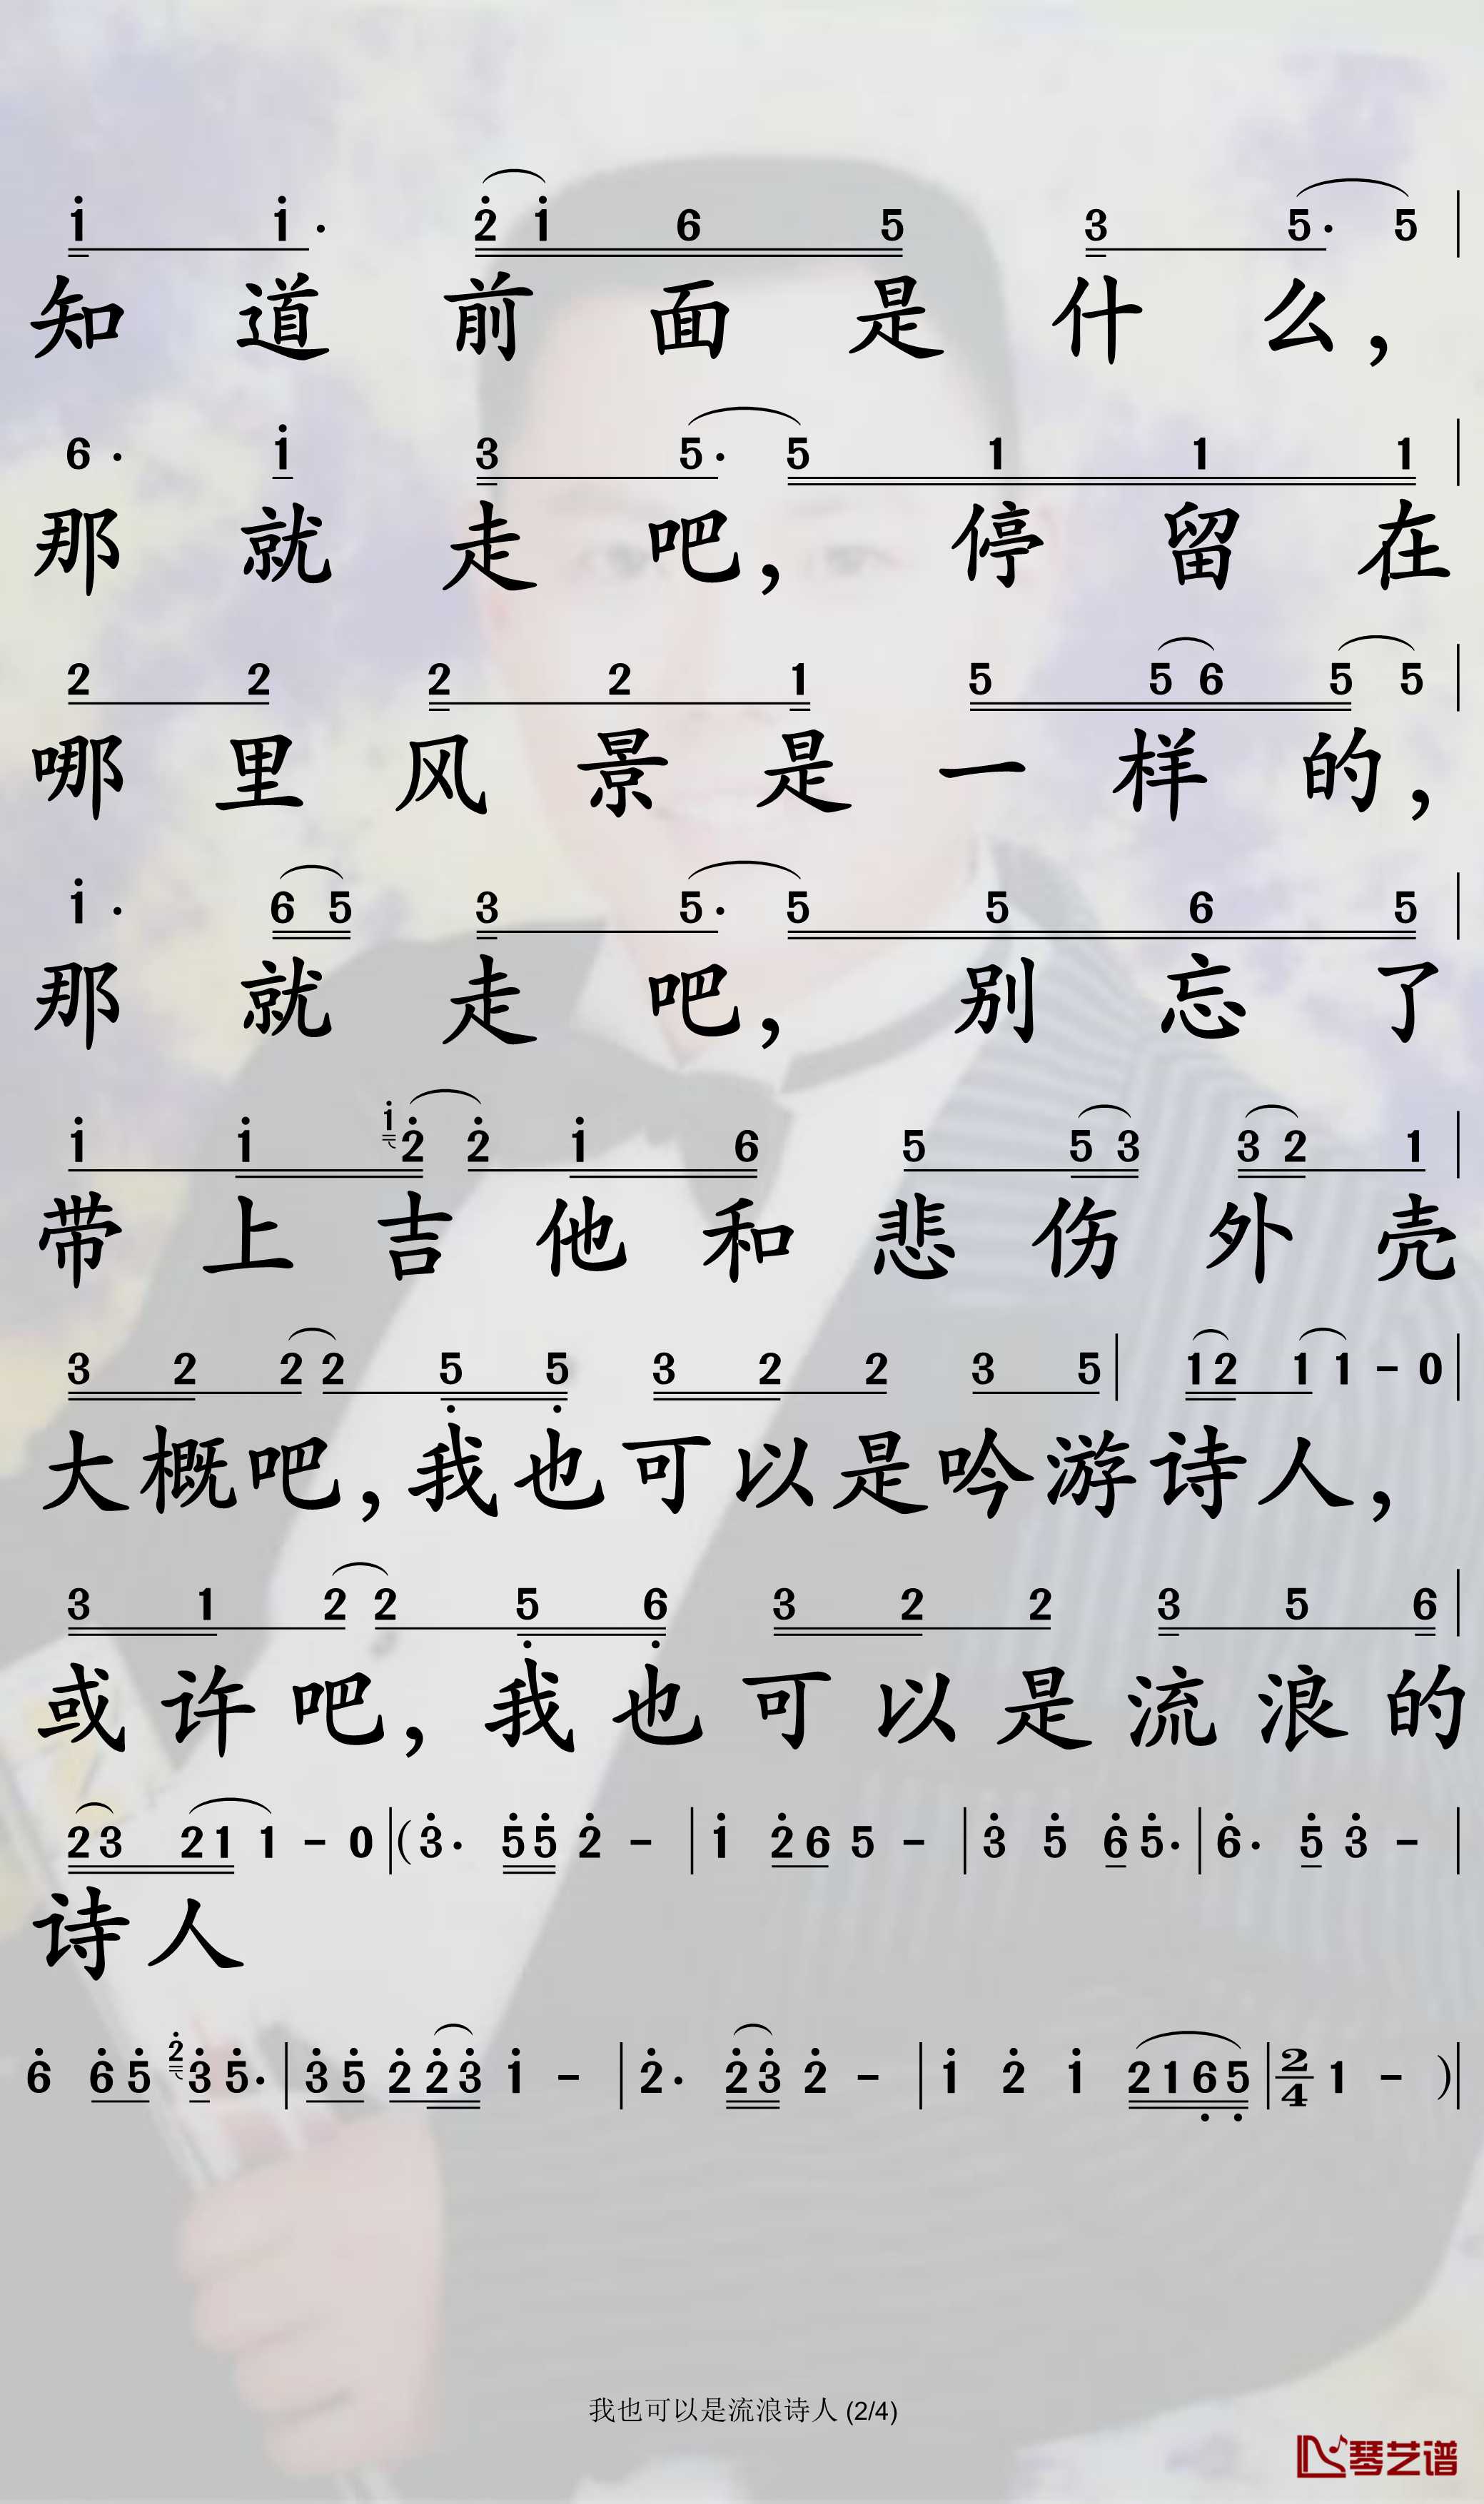 i i· 2̇ i 6 5 3 5· 5
知道前面是什么，
6· i 3 5· 5 1 1 1
那就走吧，停留在
2 2 2 2 1 5 5 6 5 5
哪里风景是一样的，
i· 6 5 3 5· 5 5 6 5
那就走吧，别忘了
i i i 2̇ 2̇ i 6 5 5 3 3 2 1
带上吉他和悲伤外壳
3 2 2 2 5̣ 5̣ 3 2 2 3 5 | 1 2 1 1 - 0
大概吧，我也可以是吟游诗人，
3 1 2 2 5̣ 6̣ 3 2 2 3 5 6
或许吧，我也可以是流浪的
2 3 2 1 1 - 0 | (3̇· 5̇ 5̇ 2̇ - | i 2̇ 6 5 - | 3̇ 5̇ 6̇ 5̇· | 6̇· 5̇ 3̇ - |
诗人
6̇ 6̇ 5̇ 2̇ 3̇ 5̇· | 3̇ 5̇ 2̇ 2̇ 3̇ i - | 2̇· 2̇ 3̇ 2̇ - | i 2̇ i 2 1 6̣ 5̣ | 2/4 1 - )
我也可以是流浪诗人 (2/4)
琴艺谱